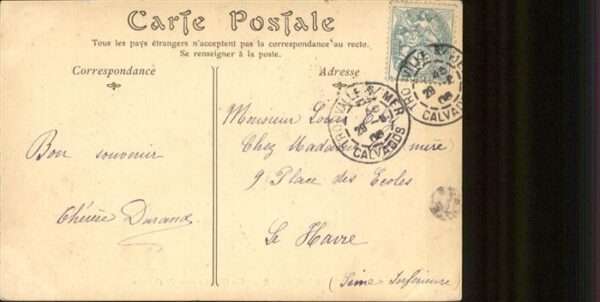 Carte Postale
Tous les pays étrangers n'acceptent pas la correspondance au recto.
Se renseigner à la poste.
Correspondance
Adresse
TROUVILLE S/MER
CALVADOS
TROUVILLE S/MER
CALVADOS
Bon souvenir
Thérèse Durand
Monsieur Louis
Chez Madame
9 Place des Ecoles
Le Havre
(Seine Inférieure)